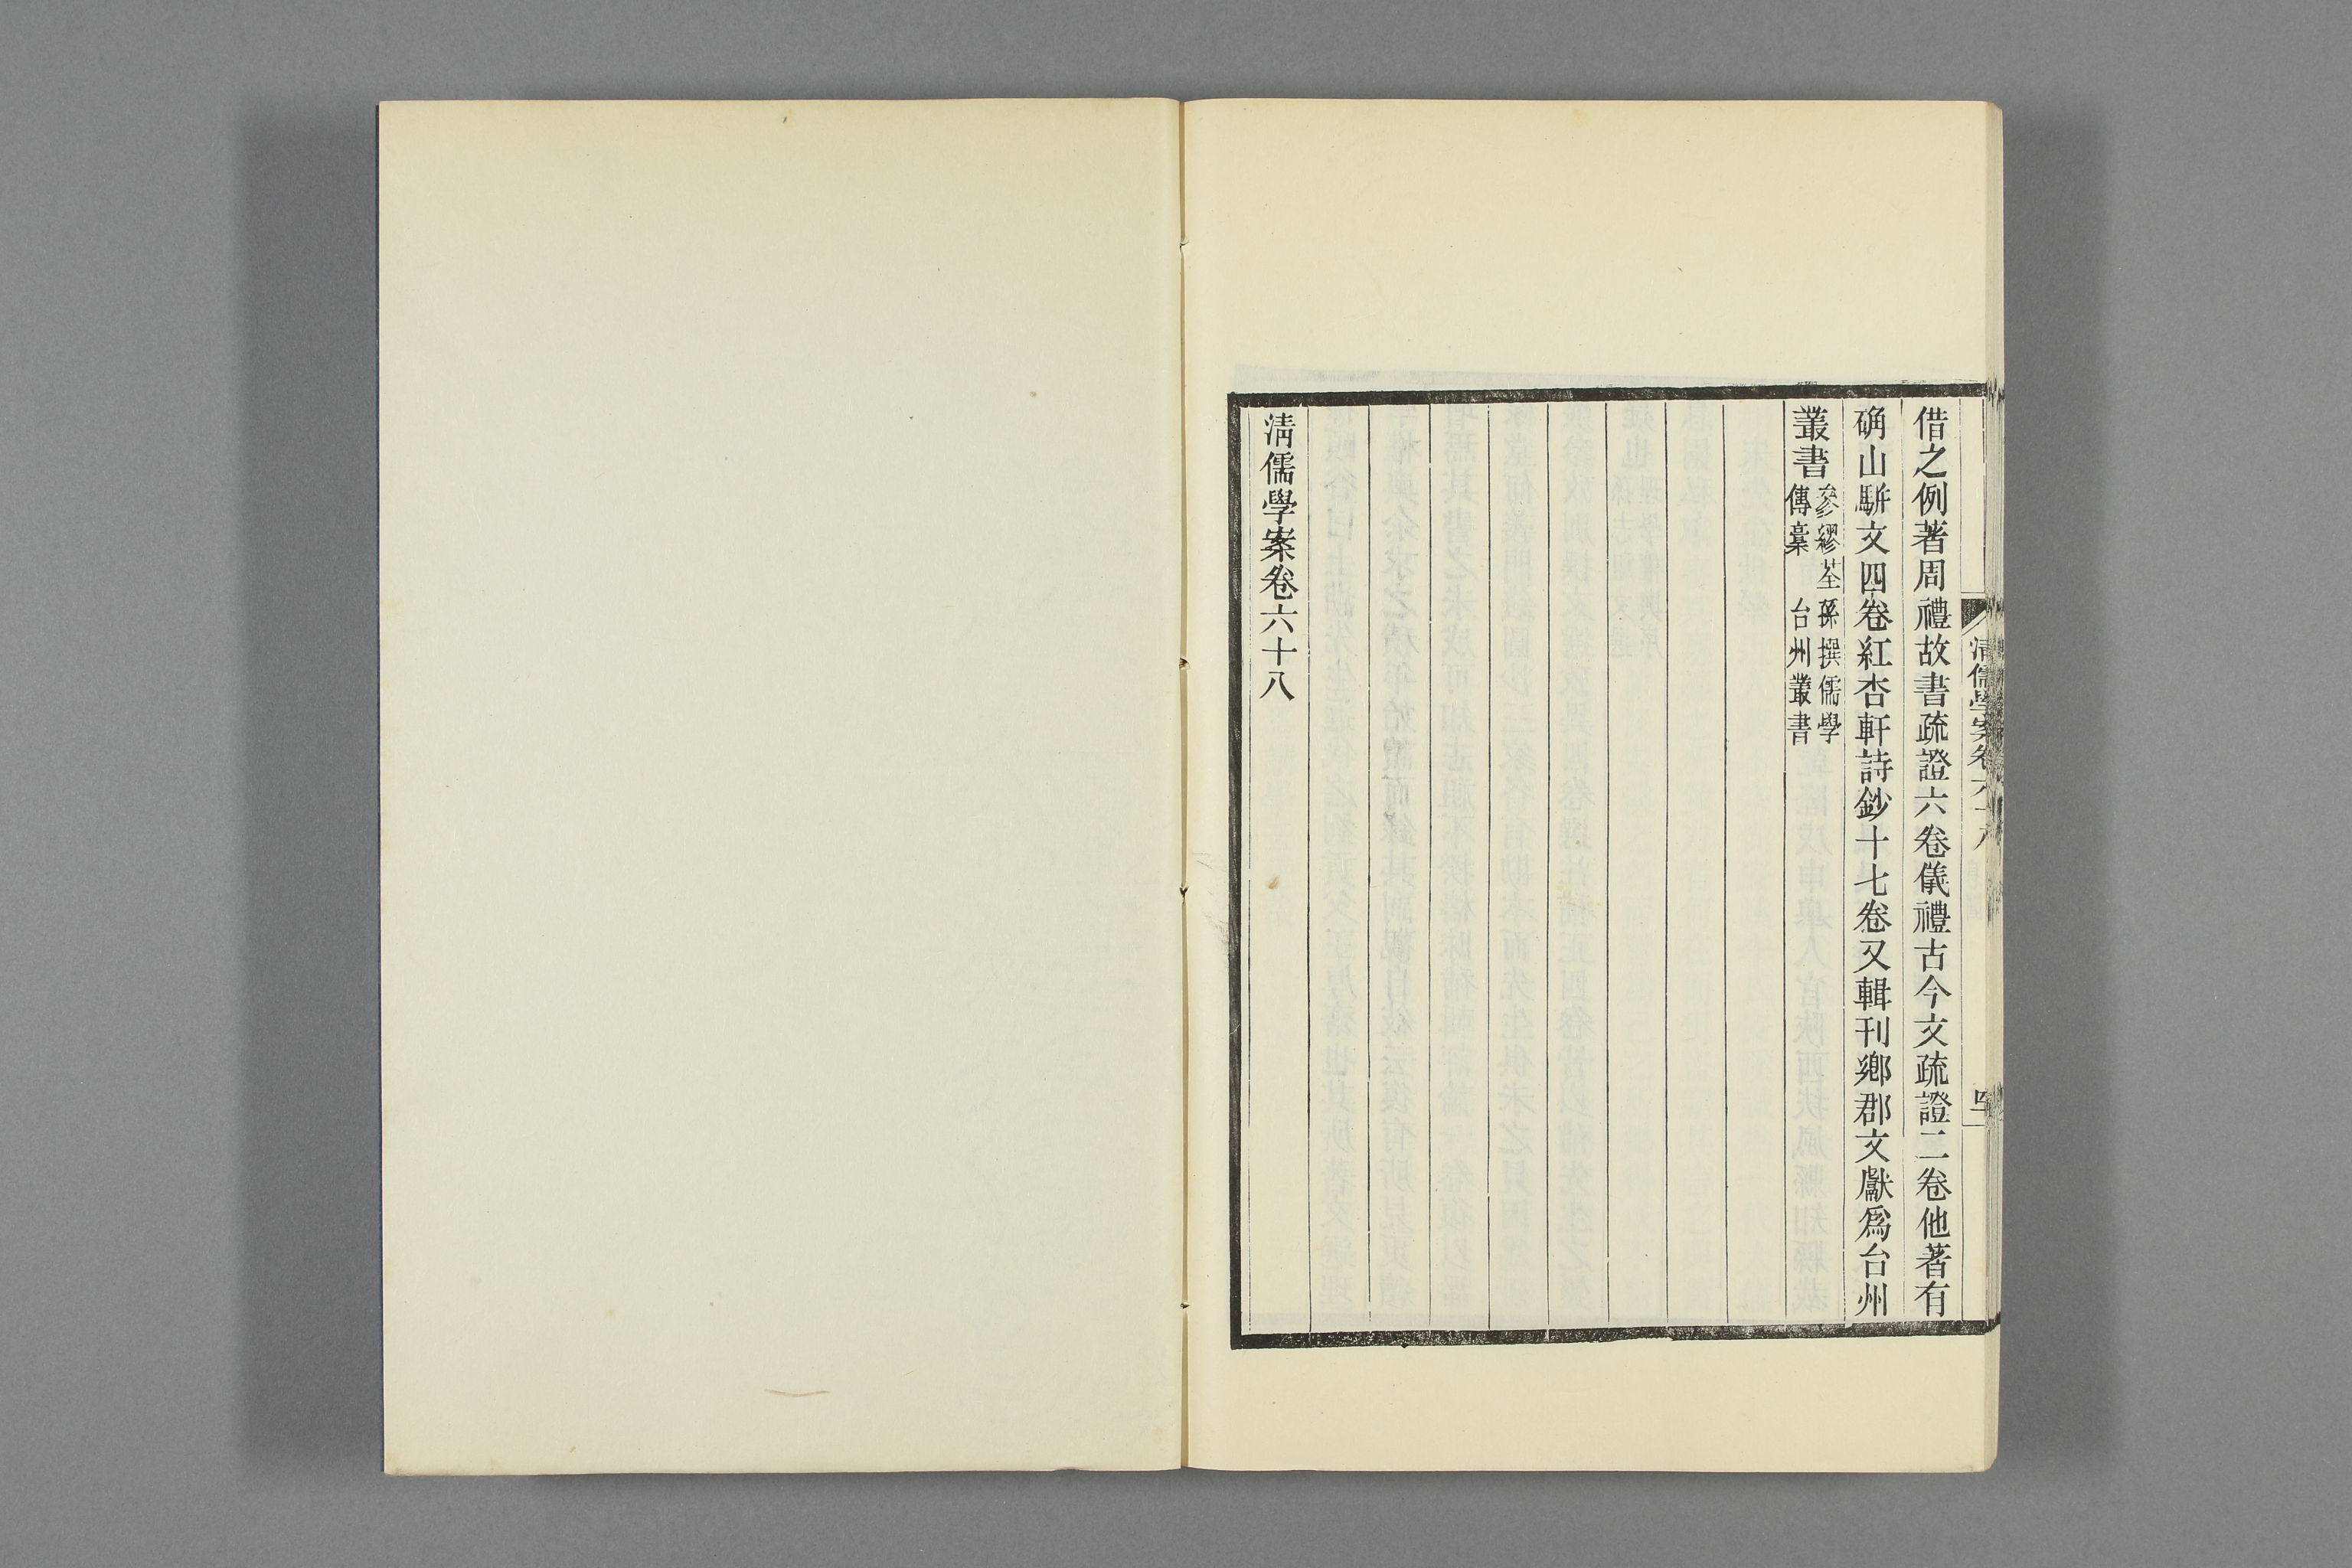 清儒學案卷六十八
借之例著周禮故書疏證六卷儀禮古今文疏證二卷他著有
确山駢文四卷紅杏軒詩鈔十七卷又輯刊鄉郡文獻爲台州
叢書
參繆荃孫撰儒學
傳稾 台州叢書
清儒學案卷六十八